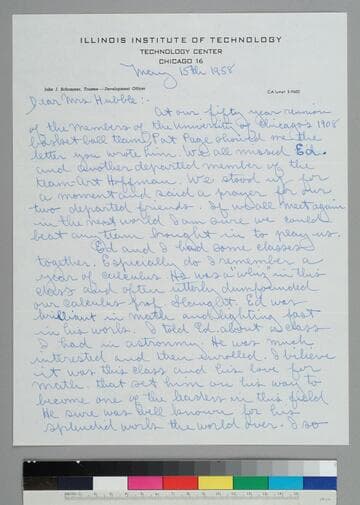 ILLINOIS INSTITUTE OF TECHNOLOGY
TECHNOLOGY CENTER
CHICAGO 16
John J. Schommer, Trustee—Development Officer
CAlumet 5-9600
May 15th 1958
Dear Mrs Hubble:-
At our fifty year reunion
of the members of the University of Chicago's 1908
basket ball team, Pat Page showed me the
letter you wrote him. We all missed Ed.
and another departed member of the
team Art Hoffman. We stood up for
a moment and said a prayer for our
two departed friends. If we all meet again
in the next world I am sure we could
beat any team brought in to play us.
Ed and I had some classes
together. Especially do I remember a
year of calculus He was a "whiz" in this
class and often utterly dumbfounded
our calculus prof I thought. Ed was
brilliant in math and lighting fast
in his work. I told Ed about a class
I had in astronmy. He was much
interested and then enrolled. I believe
it was this class and his love for
math. that set him on his way to
become one of the leaders in this field
He sure was well known for his
splendid work the world over. I so